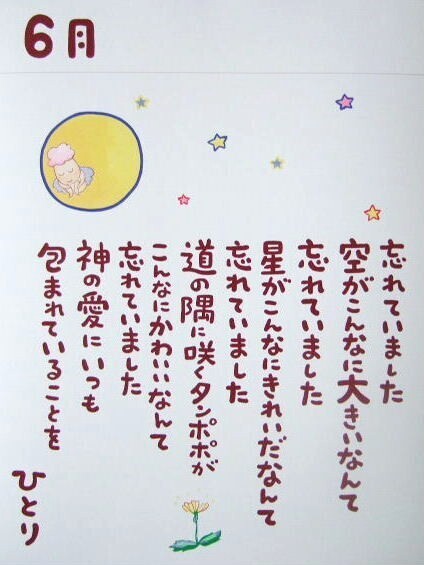 6月
忘れていました
空がこんなに大きいなんて
忘れていました
星がこんなにきれいだなんて
忘れていました
道の隅に咲くタンポポが
こんなにかわいいなんて
忘れていました
神の愛にいつも
包まれていることを
ひとり